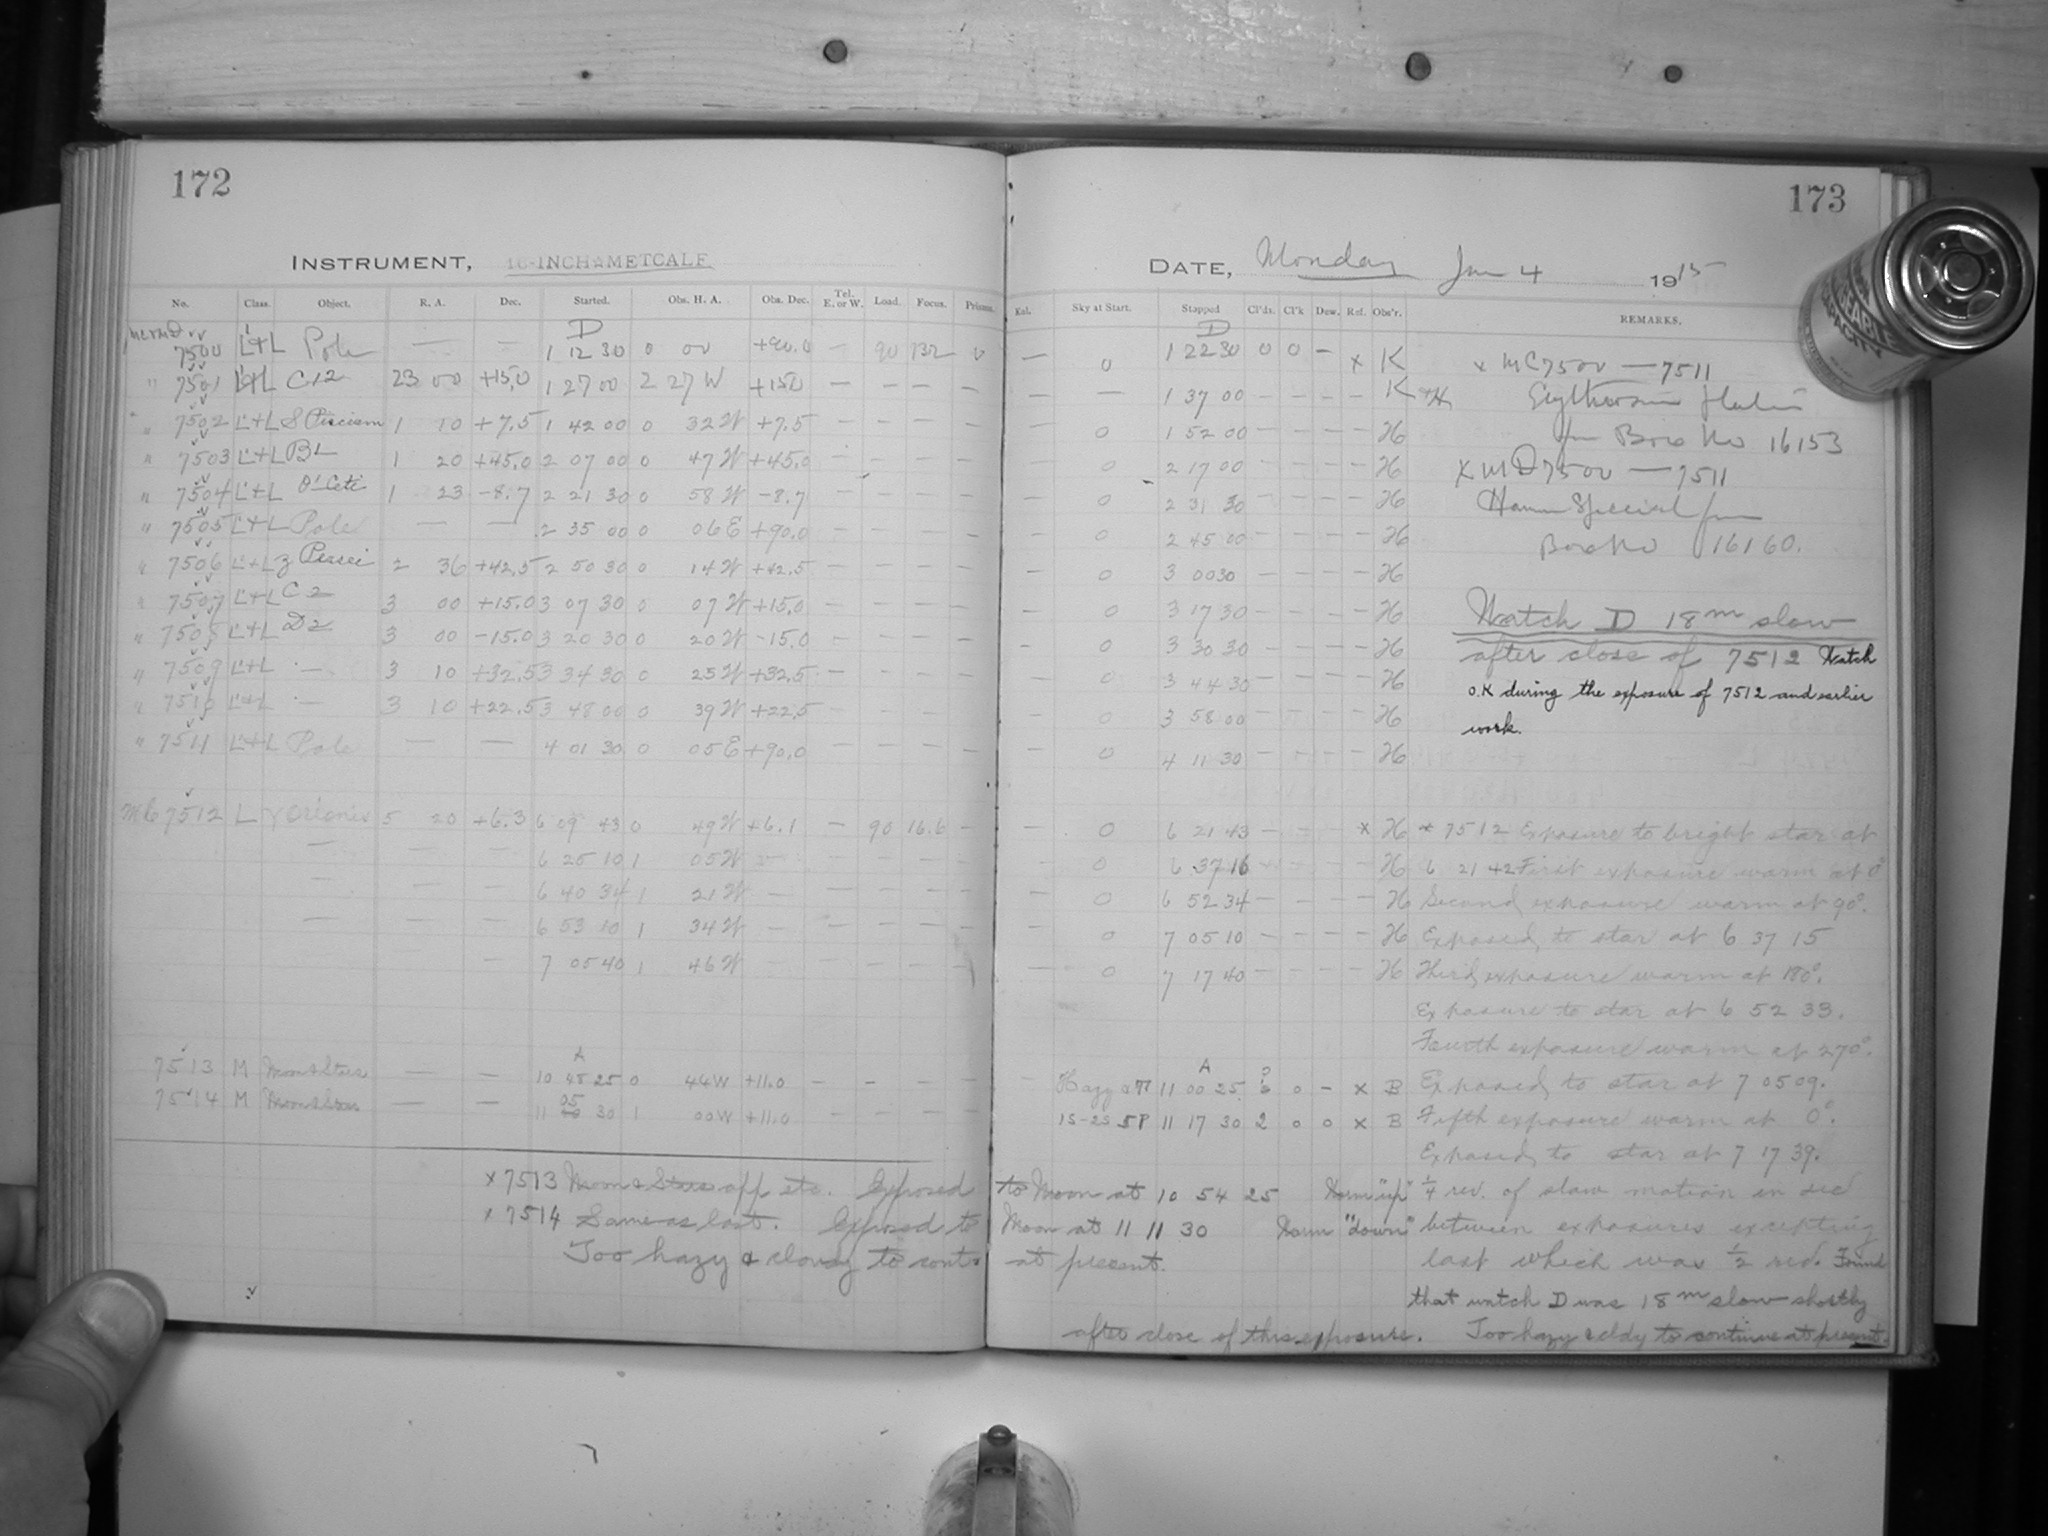 172
173
INSTRUMENT, 16-INCH METCALF
DATE, Monday Jan 4 1915
No. Class. Object. R. A. Dec. Started. Obs. H. A. Obs. Dec. Tel. E. or W. Load. Focus. Prisms. Kel. Sky at Start. Stopped Cl'ds. Cl'k Dew. Ref. Obs'r. REMARKS.
D D
7500 L+L Pole — — 1 12 30 0 00 +90.0 — 90 132 0 — 0 1 22 30 0 0 — x K x MC 7500 — 7511
" 7501 L+L C12 23 00 +15.0 1 27 00 2 27 W +15.0 — — — — — — 1 37 00 — — — — K Erythrosin
" 7502 L+L S Piscium 1 10 +7.5 1 42 00 0 32 W +7.5 — — — — — 0 1 52 00 — — — — H Box No 16153
" 7503 L+L BL 1 20 +45.0 2 07 00 0 47 W +45.0 — — — — — 0 2 17 00 — — — — H x MD 7500 — 7511
" 7504 L+L O' Ceti 1 23 -8.7 2 21 30 0 58 W -8.7 — — — — 0 2 31 30 — — — — H Special
" 7505 L+L Pole — — 2 35 00 0 06 E +90.0 — — — — — 0 2 45 00 — — — — H Box No 16160.
" 7506 L+L Z Persei 2 36 +42.5 2 50 30 0 14 W +42.5 — — — — — 0 3 00 30 — — — — H
" 7507 L+L C2 3 00 +15.0 3 07 30 0 07 W +15.0 — — — — — 0 3 17 30 — — — — H Watch D 18m slow
" 7508 L+L D2 3 00 -15.0 3 20 30 0 20 W -15.0 — — — — - 0 3 30 30 — — — — H after close of 7512 Watch
" 7509 L+L — 3 10 +32.5 3 34 30 0 25 W +32.5 — — — — — 0 3 44 30 — — — — H O.K during the exposure of 7512 and earlier
" 7510 L+L — 3 10 +22.5 3 48 00 0 39 W +22.5 — — — — — 0 3 58 00 — — — — H work.
" 7511 L+L Pole — — 4 01 30 0 05 E +90.0 — — — — — 0 4 11 30 — — — — H
MC 7512 L γ Orionis 5 20 +6.3 6 09 43 0 49 W +6.1 — 90 16.6 — — 0 6 21 43 — — — * H * 7512 Exposure to bright star at
— — — 6 25 10 1 05 W — — 0 6 37 16 — — — — H 6 21 42 First exposure warm at 0°
— — — 6 40 34 1 21 W — — — — — — 0 6 52 34 — — — — H Second exposure warm at 90°.
— — — 6 53 10 1 34 W — — — — — — 0 7 05 10 — — — — H Exposed to star at 6 37 15
— 7 05 40 1 46 W — — — — — — 0 7 17 40 — — — — H Third exposure warm at 180°.
Exposure to star at 6 52 33.
Fourth exposure warm at 270°.
A A
7513 M Moon+Stars — — 10 45 25 0 44 W +11.0 — — — — — Hazy 11 00 25 0 — x B Exposed to star at 7 05 09.
7514 M Moon+Stars — — 11 05 30 1 00 W +11.0 — — — — 1S-2S 5P 11 17 30 2 0 0 x B Fifth exposure warm at 0°.
Exposed to star at 7 17 39.
x 7513 Moon & Stars off etc. Exposed to Moon at 10 54 25 "up" ¼ rev. of slow motion in dec
x 7514 Same as last. Exposed to Moon at 11 11 30 "down" between exposures excepting
Too hazy & cloudy to cont. at present. last which was ½ rev. Found
that watch D was 18m slow shortly
after close of this exposure. Too hazy & cldy to continue at present.